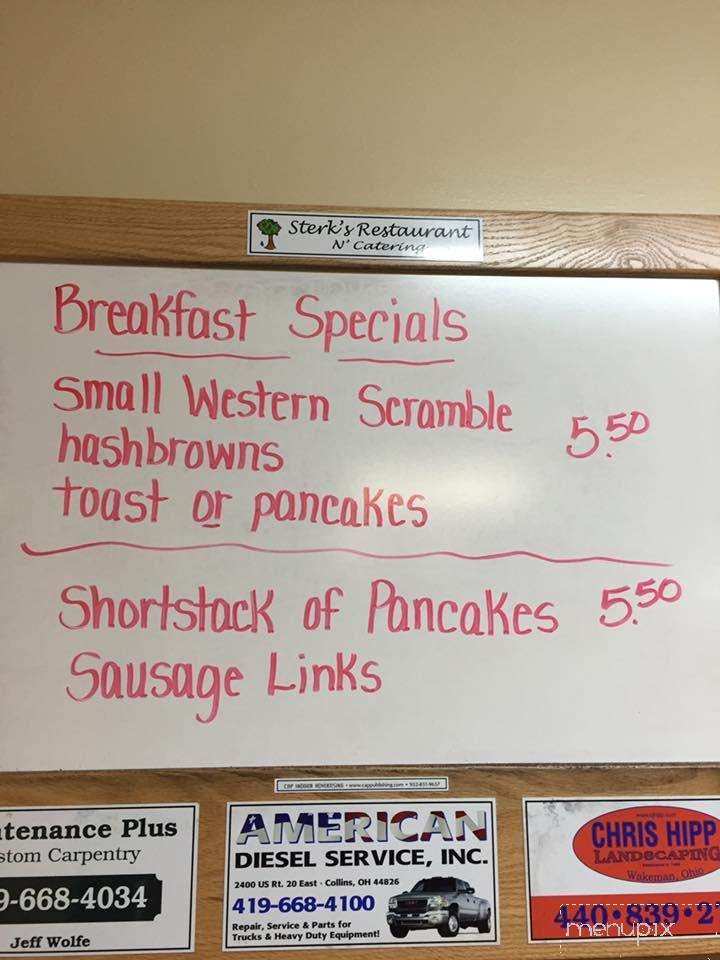 Sterk's Restaurant
N' Catering
Breakfast Specials
small Western Scramble 5.50
hashbrowns
toast or pancakes
Shortstack of Pancakes 5.50
Sausage Links
CAP INDOOR ADVERTISING • www.cappublishing.com • 952-851-9657
tenance Plus
stom Carpentry
9-668-4034
Jeff Wolfe
AMERICAN
DIESEL SERVICE, INC.
2400 US Rt. 20 East - Collins, OH 44826
419-668-4100
Repair, Service & Parts for
Trucks & Heavy Duty Equipment!
CHRIS HIPP
LANDSCAPING
Wakeman, Ohio
440•839•2
menupix